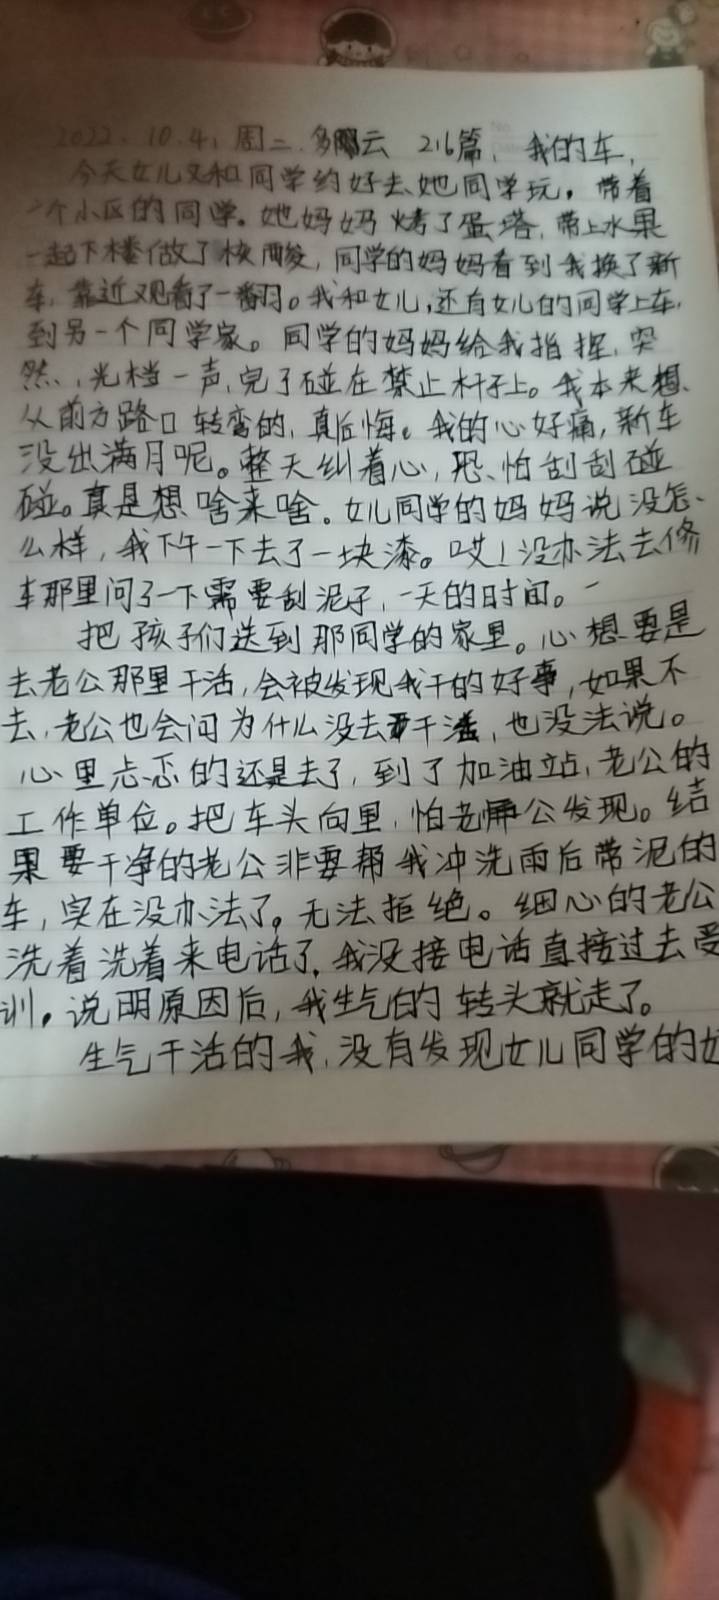 2022.10.4,周二.多云 216篇,我的车,
今天女儿又和同学约好去她同学玩,带着
一个小区的同学。她妈妈烤了蛋塔,带上水果
一起下楼做了核酸,同学的妈妈看到我换了新
车,靠近观看了一番。我和女儿,还有女儿的同学上车,
到另一个同学家。同学的妈妈给我指挥,突
然,光档一声,完了碰在禁止杆子上。我本来想
从前方路口转弯的,真后悔。我的心好痛,新车
没出满月呢。整天纠着心,恐怕刮刮碰
碰。真是想啥来啥。女儿同学的妈妈说没怎
么样,我下午一下去了一块漆。哎!没办法去修
车那里问了一下需要刮泥子,一天的时间。
把孩子们送到那同学的家里。心想要是
去老公那里干活,会被发现我干的好事,如果不
去,老公也会问为什么没去干活,也没法说。
心里忐忑的还是去了,到了加油站,老公的
工作单位。把车头向里,怕老公发现。结
果要干净的老公非要帮我冲洗雨后带泥的
车,实在没办法了。无法拒绝。细心的老公
洗着洗着来电话了,我没接电话直接过去受
训。说明原因后,我生气的转头就走了。
生气干活的我,没有发现女儿同学的